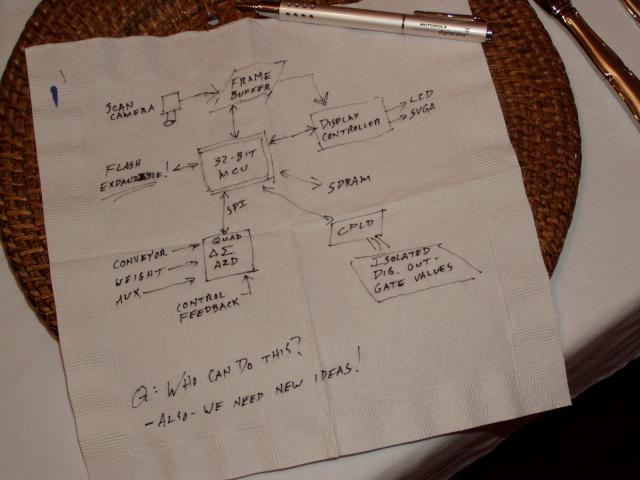 MOTOROLA
digital dna
SCAN
CAMERA
FRAME
BUFFER
DISPLAY
CONTROLLER
LCD
SVGA
FLASH
EXPANDABLE!
32-BIT
MCU
SDRAM
SPI
CPLD
CONVEYOR
WEIGHT
AUX
QUAD
ΔΣ
A2D
ISOLATED
DIG. OUT-
GATE VALVES
CONTROL
FEEDBACK
Q: WHO CAN DO THIS?
-ALSO- WE NEED NEW IDEAS!